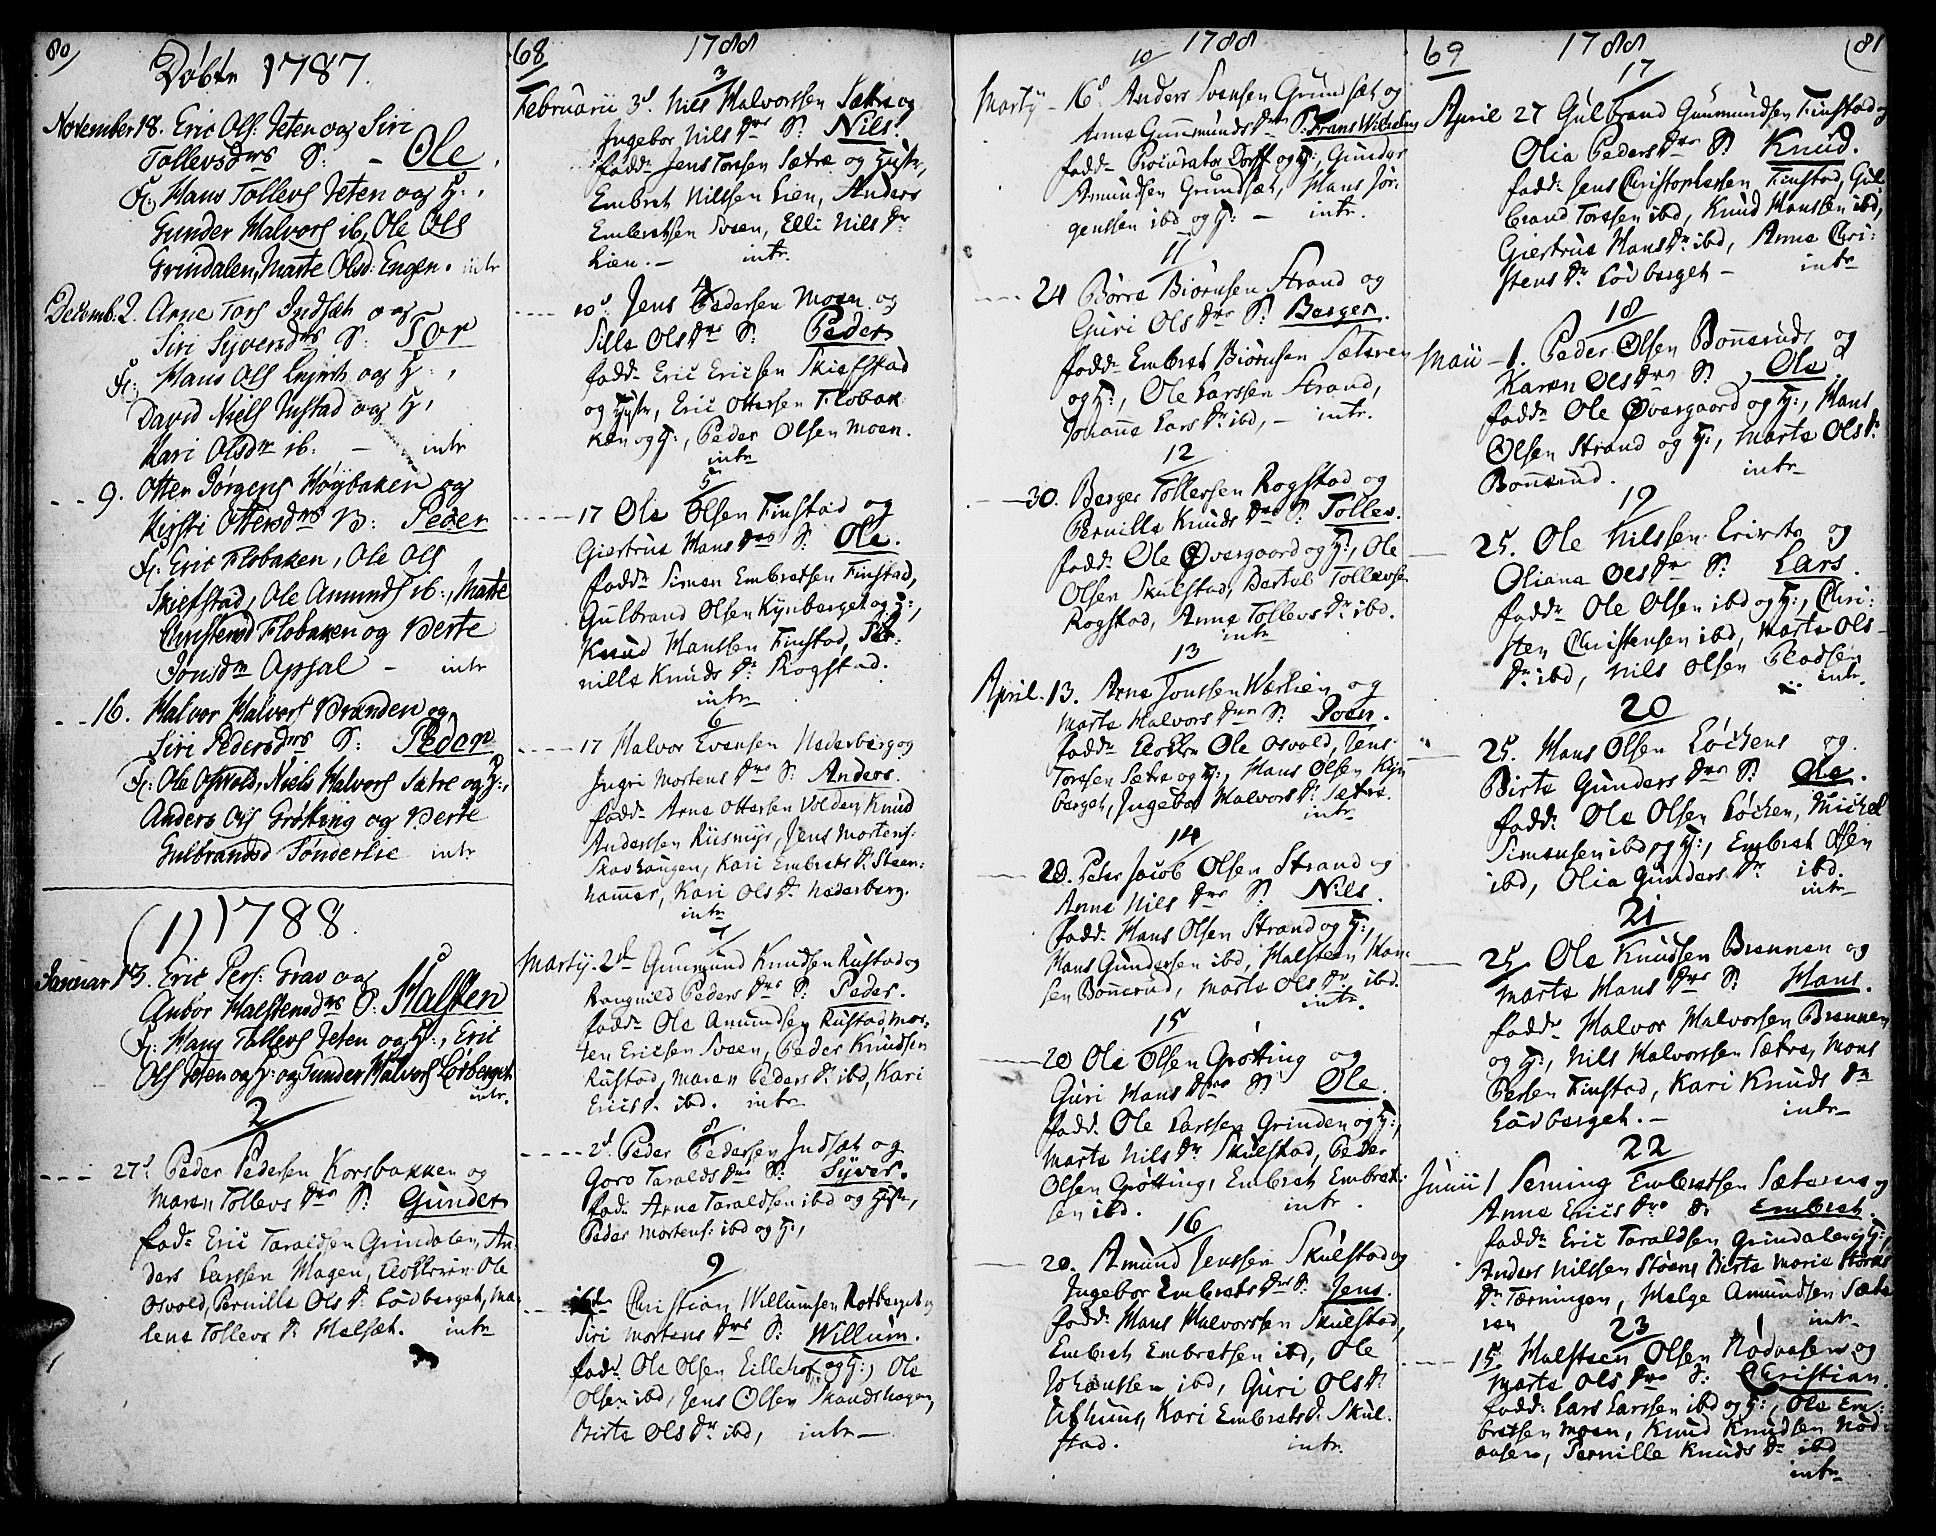 80
Døbte 1787.
November 18. Eric Ols: Jeten og Siri
Tollevsdrs S: - Ole.
F: Hans Tollevs Jeten og H:,
Gunder Halvors ib, Ole Ols
Grindalen, Marte Olsd: Engen. intr
Decemb. 2. Arne Tors Indsæt og
Siri Syversdrs S: Tor
F: Hans Ols og H:,
David Niels og H,
Kari Olsdr ib. - intr
- - 9. Otter Jørgens Høybaken og
Kirsti Ottersdrs B: Peder
F: Eric Flobaken, Ole Ols
Skiefstad, Ole Amunds ib:, Marte
Christensd Flobaken og Berte
Jonsdr Opsal - intr
- - 16. Halvor Halvors Brænden og
Siri Pedersdrs S: Peder
F: Ole Oswold, Niels Halvors Sætre og H:,
Anders Ols Grøtting og Berte
Gulbrandsd Sønderlie intr
(1) 1788.
Januar 13. Eric Pers: Grav og
Anbor Halstensdrs S: Halsten
F: Hans Tollevs Jeten og H:, Eric
Ols Jeten og H: og Gunder Halvors Lørberget
intr.
2
- - - 27d Peder Pedersen Korsbakken og
Maren Tollevs drs S: Gunder
fad: Eric Taraldsen Grindalen, An-
ders Larssen Hagen, Klokkeren Ole
Osvold, Pernille Ols Dr Lødberget, Ma-
lene Tollevs Dr Melsæt. intr
68
1788
3
Februarii 3d. Nils Halvorssen Sætre og
Ingebor Nils drs S: Nils.
fadd: Jens Torsen Sætre og Hustr,
Embret Nilssen Lien, Anders
Embretsen Sveen, Elli Nils Dr
Lien. - intr.
4
- - - - 10d. Jens Pedersen Moen og
Sille Ols drs S: Peder
fadd: Eric Ericsen Skiefstad
og Hustr, Eric Ottersen Flobak-
ken og H:, Peder Olsen Moen.
intr
5
- - - - 17 Ole Olsen Finstad og
Giertrue Hans drs S: Ole.
fadd: Simen Embretsen Finstad,
Gulbrand Olsen Kynberget og H:,
Knud Hanssen Finstad, Per-
nille Knuds Dr Rogstad.
intr
6
- - - - 17 Halvor Evensen Nederberg og
Ingri Mortens drs S: Anders.
fadd: Arne Ottersen Volden, Knud
Anderssen Riismyr, Jens Mortens:
Skavhaugen, Kari Embrets Dr Steen-
hamer, Kari Ols Dr Nederberg.
intr
7
Martij. 2d Gunmund Knudsen Rustad og
Rangnild Peders drs S: Peder.
fadd: Ole Amundsen Rustad, Mor-
ten Ericsen Sveen, Peder Knudsen
Rustad, Maren Peders Dr ibd, Kari
Erics Dr ibd. intr
8
- - - - 2d. Peder Pedersen Indsæt og
Goro Taralds drs S: Syver.
fad: Arne Taraldsen ibd og Hustr,
Peder Mortens: ibd og H:,
9
- - - ibd Christian Willumsen Rotberget og
Siri Mortens drs S: Willum.
fad: Ole Olsen Lillehof og H:, Ole
Olsen ibd, Jens Olsen Skaadshagen,
Birte Ols Dr ibd, intr -
1788
10
Martij - 16d. Anders Svensen Grundsæt og
Anne Gunmunds drs S: Frans Wilhelm
fadd: Procurator Dorff og H:, Gunder
Amundsen Grundsæt, Hans Jør-
genssen ibd og H: - intr.
11
- - - - 24 Børre Biørnsen Strand og
Guri Ols drs S: Berger.
fadd: Embret Biørnsen Sæteren
og H:, Ole Larssen Strand,
Johanne Lars Dr ibd, - intr.
12
- - - 30. Berger Tollefsen Rogstad og
Pernille Knuds drs S: Tollev.
fadd: Ole Øvergaard og H:, Ole
Olsen Skulstad, Bertol Tollevse
Rogstad, Anne Tollevs Dr ibd.
intr
13
April. 13. Arne Jonssen Wæslien og
Marte Halvors drs S: Sven.
fadd: Klokkr Ole Osvold, Jens
Torssen Sætre og H:, Hans Olsen Kyn-
berget, Ingebor Halvors Dr Sætre.
intr
14
20. Peter Jacob Olsen Strand og
Anne Nils drs S: Nils.
fadd: Hans Olsen Strand og H:,
Hans Gundersen ibd, Halsteen Han-
sen Bønnerud, Marte Ols Dr ibd.
intr.
15
20 Ole Olsen Grøtting og
Guri Hans drs S: Ole.
fadd: Ole Larssen Grinden og H:,
Marte Nils Dr Skulstad, Peder
Olsen Grøtting, Embret Embret-
sen ibd. intr.
16
20. Amund Jenssen Skulstad og
Ingebor Embrets drs S: Jens.
fadd: Hans Halvorssen Skulstad,
Embret Embretsen ibd, Ole
Johanssen ibd, Guri Ols Dr
Ufhuus, Kari Embrets Dr Skul-
stad. intr.
69
1788
81
17
April 27 Gulbrand Gunmundsen Finstad og
Olia Peders drs S: Knud.
fadd: Jens Christophersen Finstad, Gul-
brand Torssen ibd, Knud Hanssen ibd,
Giertrue Hans Dr ibd, Anne Chri-
stens Dr Lødberget - intr
18
Maii - 1. Peder Olsen Bonnerud og
Karen Ols drs S: Ole.
fadd: Ole Øvergaard og H:, Hans
Olsen Strand og H:, Marte Ols Dr
Bonnerud. intr
19
25. Ole Nilssen og
Oliana Ols drs S: Lars.
fadd: Ole Olsen ibd og H:, Chri-
sten Christensen ibd, Marte Ols
Dr ibd, Nils Olsen
intr.
20
25. Hans Olsen Løckens og
Birte Gunders drs S: Ole.
fadd: Ole Olsen Løcken, Michel
Simensen ibd og H:, Embret Olsen
ibd, Olia Gunders Dr ibd.
intr
21
25 Ole Knudsen Brennen og
Marte Hans drs S: Hans.
fadd: Halvor Halvorsen Brennen
og H:, Nils Halvorssen Sætre, Mons
Persen Finstad, Kari Knuds Dr
Lødberget. - intr
22
Junii 1 Seming Embretsen Sæteren og
Anne Erics drs S: Embret.
fadd: Eric Taraldsen Grindalen og H:,
Anders Nilssen Støens Birte Marie
Dr Tærningen, Helge Amundsen Sæte
ren intr
23
- - - 15 Halsteen Olsen Nødaasen og
Marte Ols drs S: Christian.
fadd: Lars Larssen ibd og H:, Ole Em-
bretsen Moen, Knud Knudsen Nød-
aasen, Pernille Knuds Dr ibd
intr